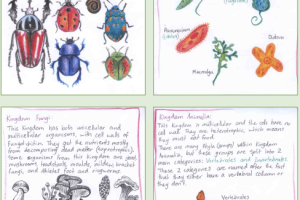 (flagellate)
Paramecium
(ciliate)
Diatom
Macroalga
Kingdom Fungi
This Kingdom has both unicellular and
multicellular organisms, with cell walls of
Fungal chitin. They get the nutrients mostly
from decomposing dead matter (saprotrophs).
Some organisms from this Kingdom are yeast,
mushrooms, toadstools, moulds, mildews, bracket
fungi, and skeletal fact and ringworms.
Kingdom Animalia
This Kingdom is multicellular and the cells have no
cell wall. They are heterotrophs, which means
they must eat food.
There are many Phyla (groups) within Kingdom
Animalia, but these groups are split into 2
main categories: Vertebrates and Invertebrates
These 2 categories are named after the fact
that they either have a vertebral column or
they don't!
Vertebrates